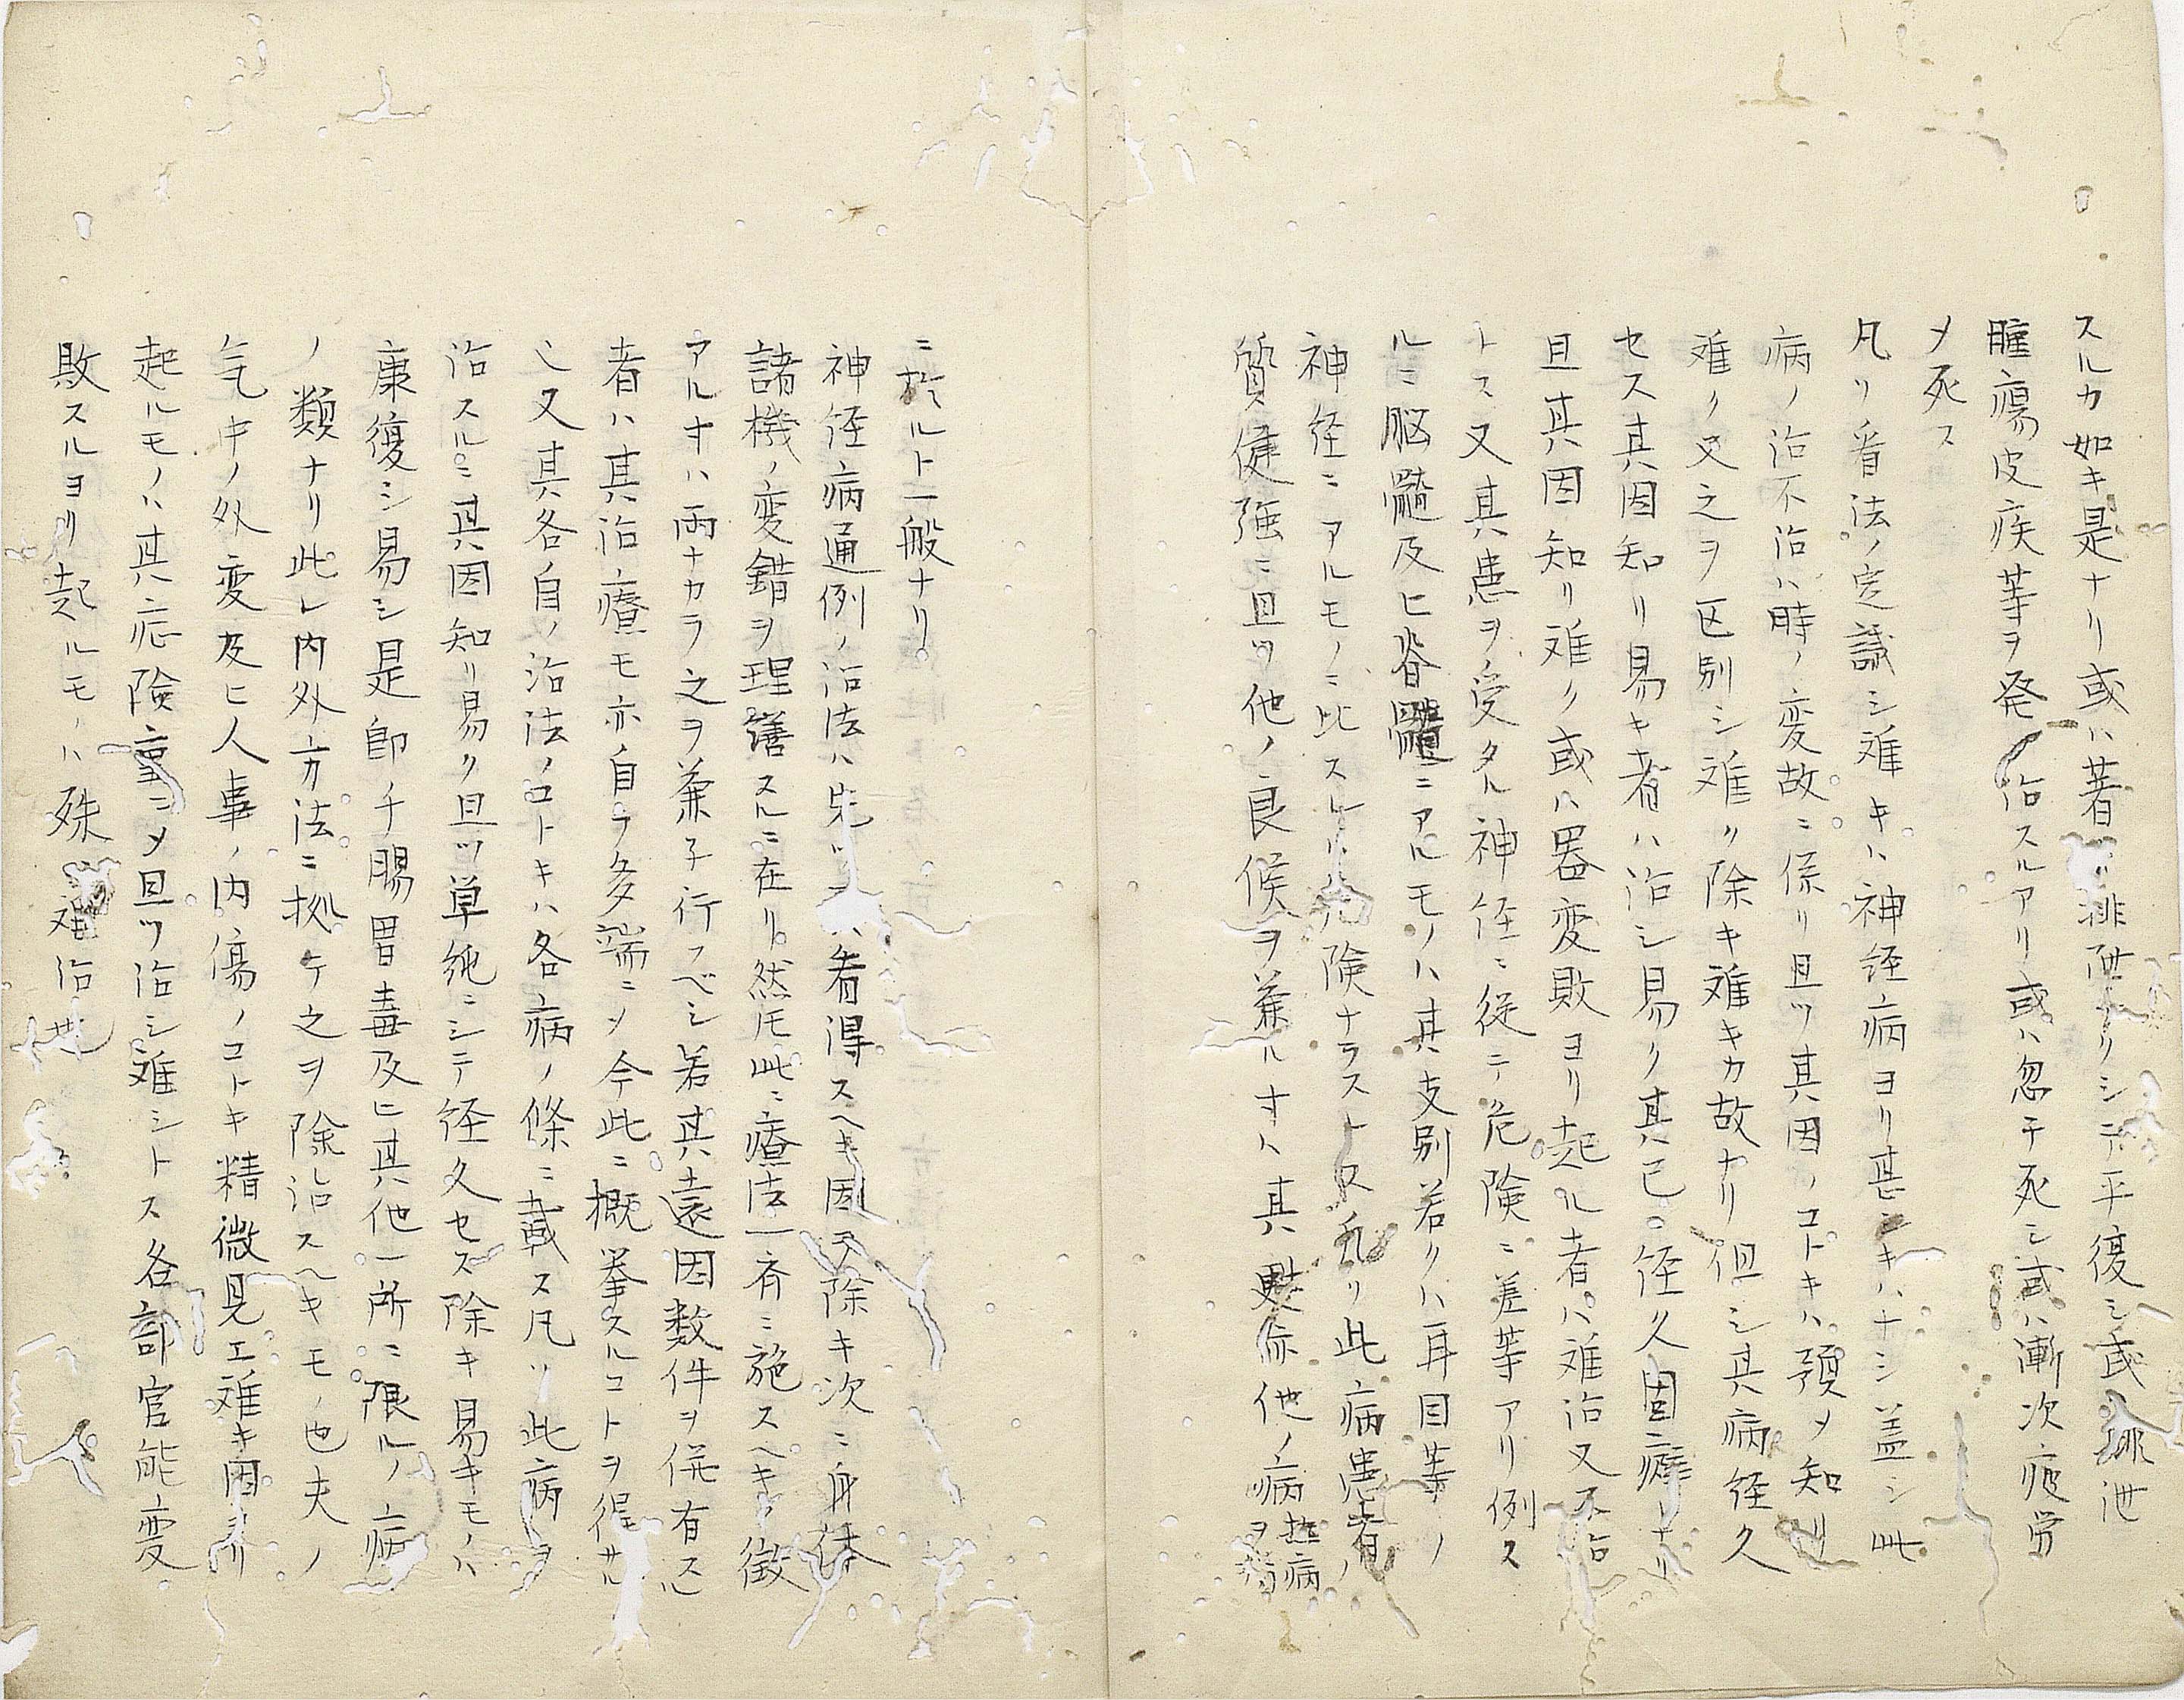 スルカ如キ是ナリ或ハ著排泄アリシテ平復シ或排泄
腫瘍皮疾等ヲ発治スルアリ或ハ忽チ死シ或ハ漸次疲労
メ死ス
凡ソ看法ノ定識シ難キハ神経病ヨリ甚シキハナシ蓋シ此
病ノ治不治ハ時ノ変故ニ係リ且ツ其因ノコトキハ預メ知リ
难ク又之ヲ区別シ难ク除キ难キカ故ナリ但シ其病経久
セス其因知リ易キ者ハ治シ易ク其已ニ経久固癖ナリ
且其因知リ难ク或ハ器変敗ヨリ起ル者ハ难治又不治
トス又其患ヲ受タル神経ニ従テ危険ニ差等アリ例ス
ルニ脳髄及ヒ脊髄ニアルモノハ其支別若クハ耳目等ノ
神経ニアルモノニ比スレハ危険ナラストス凡ソ此病患者ハ
質健強ニ且ツ他ノ良候ヲ兼ルヿハ其熱病他ノ病ヲ
ニ於ルト一般ナリ
神経病通例ノ治法ハ先ツ看得スヘキ因ヲ除キ次ニ身体
諸機ノ変錯ヲ理繕スルニ在リ然𪜈此ニ療法一斉ニ施スヘキノ徴
アルヿハ両ナカラ之ヲ兼子行フベシ若其遠因数件ヲ併有ス
者ハ其治療モ亦自ラ多端ニメ今此ニ概挙スルコトヲ得サル
シ又其各自ノ治法ノコトキハ各病ノ條ニ載ス凡ソ此病ヲ
治スルニ其因知リ易ク且ツ単純ニシテ経久セス除キ易キモノハ
康復シ易シ是即チ腸胃毒及ヒ其他一所ニ限ルノ病
ノ類ナリ此レ内外方法ニ拠ケ之ヲ除治スヘキモノ也夫ノ
気中ノ外変及ヒ人事ノ内傷ノコトキ精微見エ难キ因ヨリ
起ルモノハ其症険重ニメ且ツ治シ难シトス各部官能変
敗スルヨリ起ルモノハ殊难治也